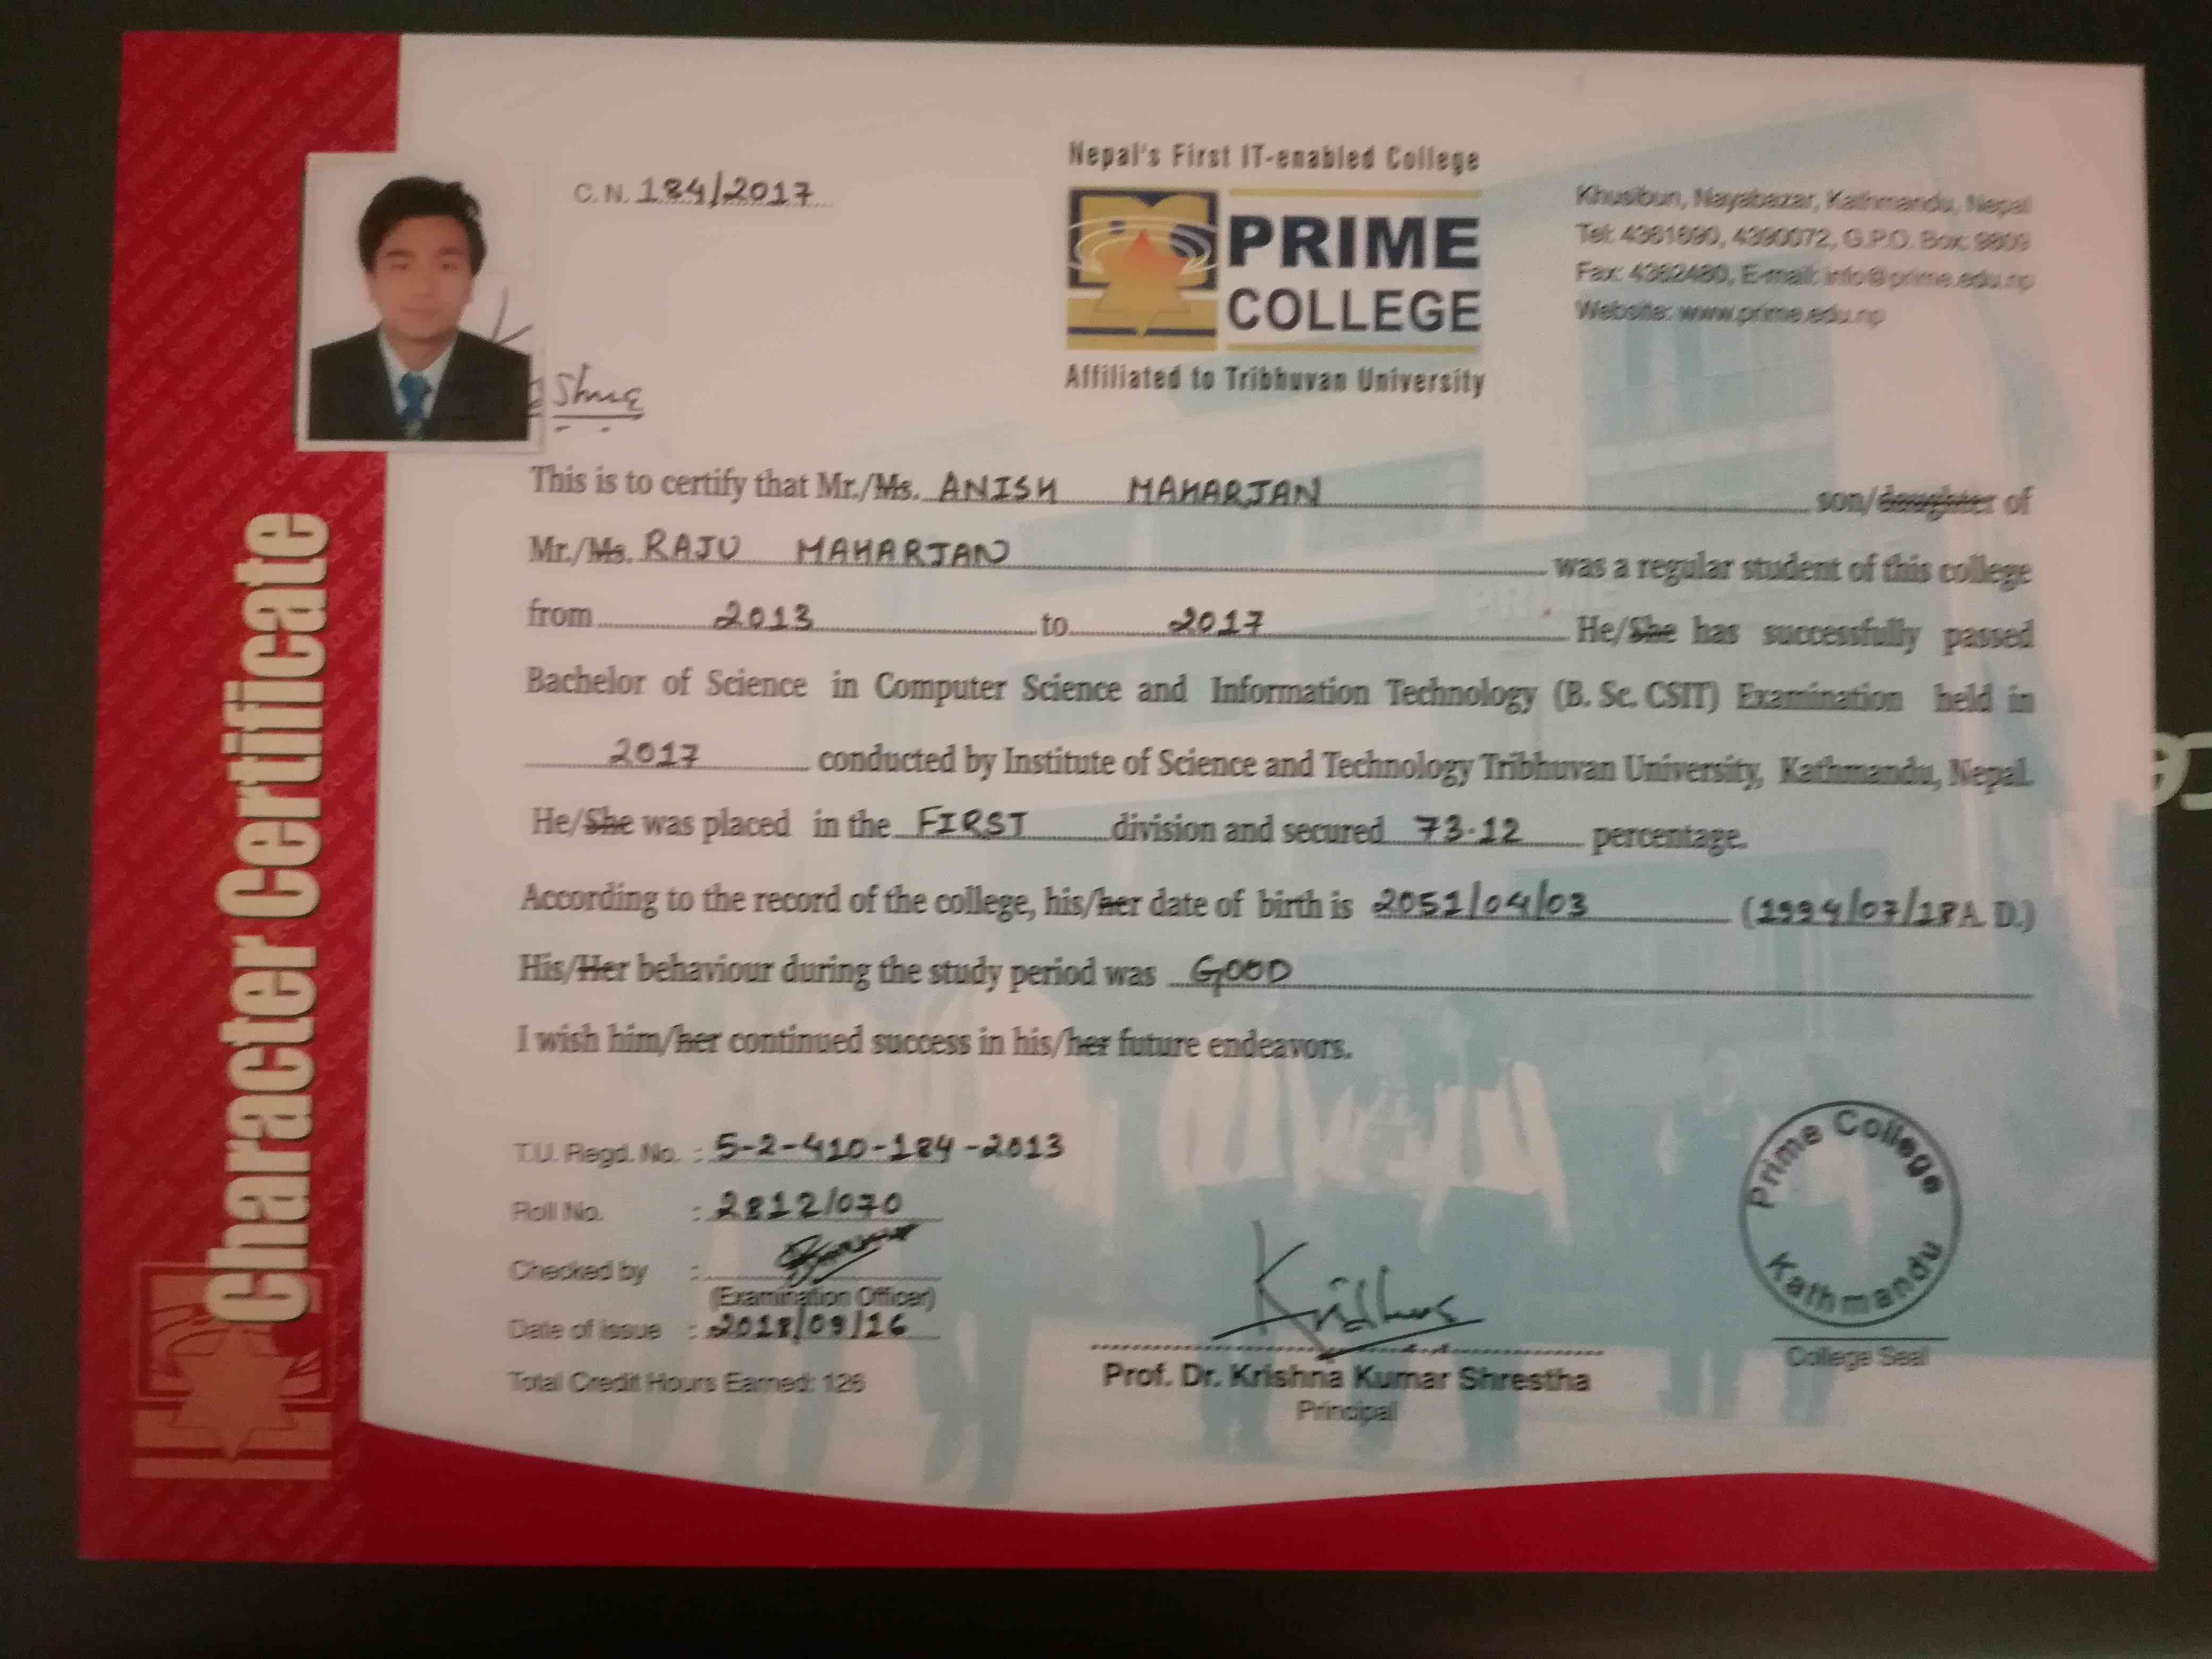 C. N. 184/2017
Nepal's First IT-enabled College
PRIME
COLLEGE
Affiliated to Tribhuvan University
Khusibun, Nayabazar, Kathmandu, Nepal
Tel: 4361690, 4390072, G.P.O. Box: 9809
Fax: 4362480, E-mail: info@prime.edu.np
Website: www.prime.edu.np
Character Certificate
This is to certify that Mr./Ms. ANISH MAHARJAN son/daughter of
Mr./Ms. RAJU MAHARJAN was a regular student of this college
from 2013 to 2017 He/She has successfully passed
Bachelor of Science in Computer Science and Information Technology (B. Sc. CSIT) Examination held in
2017 conducted by Institute of Science and Technology Tribhuvan University, Kathmandu, Nepal.
He/She was placed in the FIRST division and secured 73.12 percentage.
According to the record of the college, his/her date of birth is 2051/04/03 (1994/07/18 A. D.)
His/Her behaviour during the study period was GOOD
I wish him/her continued success in his/her future endeavors.
T.U. Regd. No. : 5-2-410-184-2013
Roll No. : 2812/070
Checked by :
(Examination Officer)
Date of issue : 2018/09/16
Total Credit Hours Earned: 126
Prof. Dr. Krishna Kumar Shrestha
Principal
Prime College
Kathmandu
College Seal